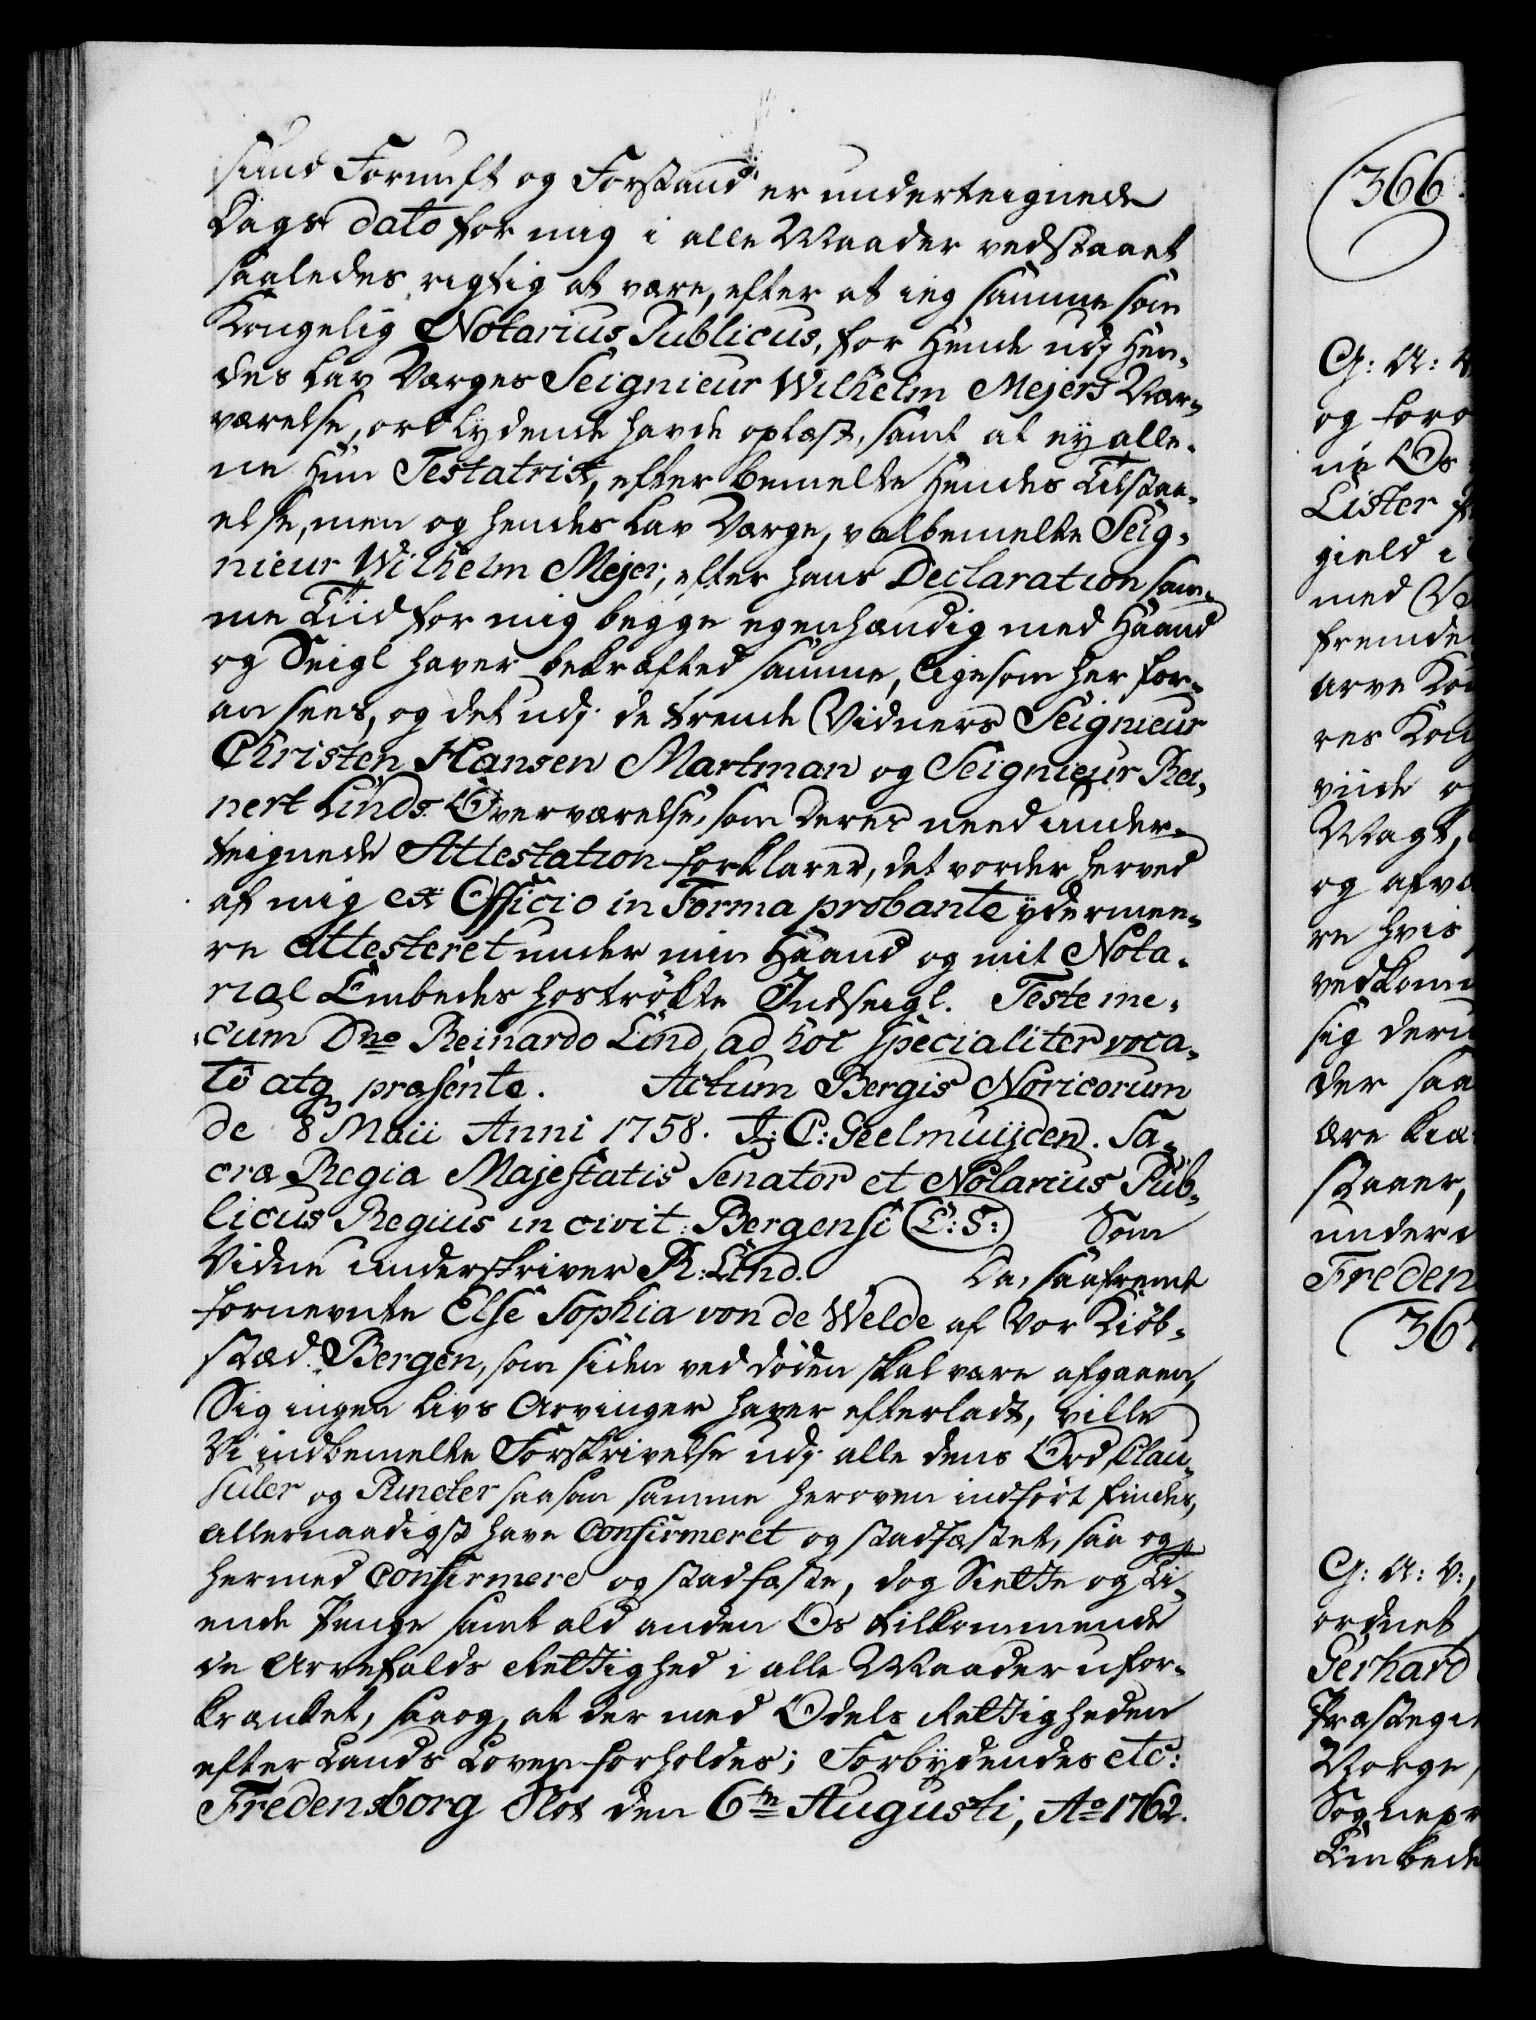 sund Fornuft og Forstand er underteignede
Dags dato for mig i alle Maader vedstaaet
saaledes rigtig at være, efter at ieg samme som
Kongelig Notarius Publicus, for Hende udj Hen-
des Lav Værges Seignieur Wilhelm Mejers Nær-
værelse, ordlydende havde oplæst, samt at ey alle-
ne Hun Testatrix, efter bemelte Hendes Tilstaa-
else, men og hendes Lav Værge, velbemelte Seig-
nieur Wilhelm Mejer, efter hans Declaration sam-
me Tiid for mig begge egenhændig med Haand
og Seigl haver bekræfted samme, ligesom her for-
an sees, og det udj de tvende Vidners Seignieur
Christen Hansen Martman og Seignieur Rei-
nert Linds Overværelse, som deres needunder-
teignede Attestation forklarer, det vorder herved
af mig ex Officio in Forma probante ydermee-
re attesteret under min Haand og mit Nota-
rial Embedes hostrøkte Indseigl. Teste me-
cum Dno Reinardo Lind, ad hoc specialiter voca-
to atq præsente. Actum Bergis Noricorum
de 8 Maii Anni 1758. J: C: Geelmuijden. Sa-
cræ Regia Majestatis Senator et Notarius Pub-
licus Regius in civit: Bergensi (L: S:) Som
Vidne underskriver R: Lind. Da, saafremt
fornevnte Else Sophia von de Welde af Vor Kiøb-
stæd Bergen, som siden ved døden skal være afgaaen,
Sig ingen Livs Arvinger haver efterladt, ville
Vi indbemelte Forskrivelse udj alle dens Ord, Clau-
suler og Puncter saasom samme herovven indført findes,
allernaadigst have Confirmeret og stadfæstet, saa og
hermed Confirmere og stadfæste, dog Siette og Ti-
ende Penge samt ald anden Os tilkommende
de Arvefalds Rettighed i alle Maader ufor-
krænket, saa og, at der med Odels Rettigheden
efter Lands Loven forholdes; Forbydendes etc:
Fredensborg Slot den 6te Augusti, Ao 1762.
366.
G: A: V
og foro
ne Os
Lister
gield i
med
fremde
arve
res
viide
Magt,
og
re hvis
vedkom
sig
der saa
ære
staaer,
under
Freden
367
G: A: V:,
ordnet
Gerhard
Præstegi
Norge,
Sognepr
Embede